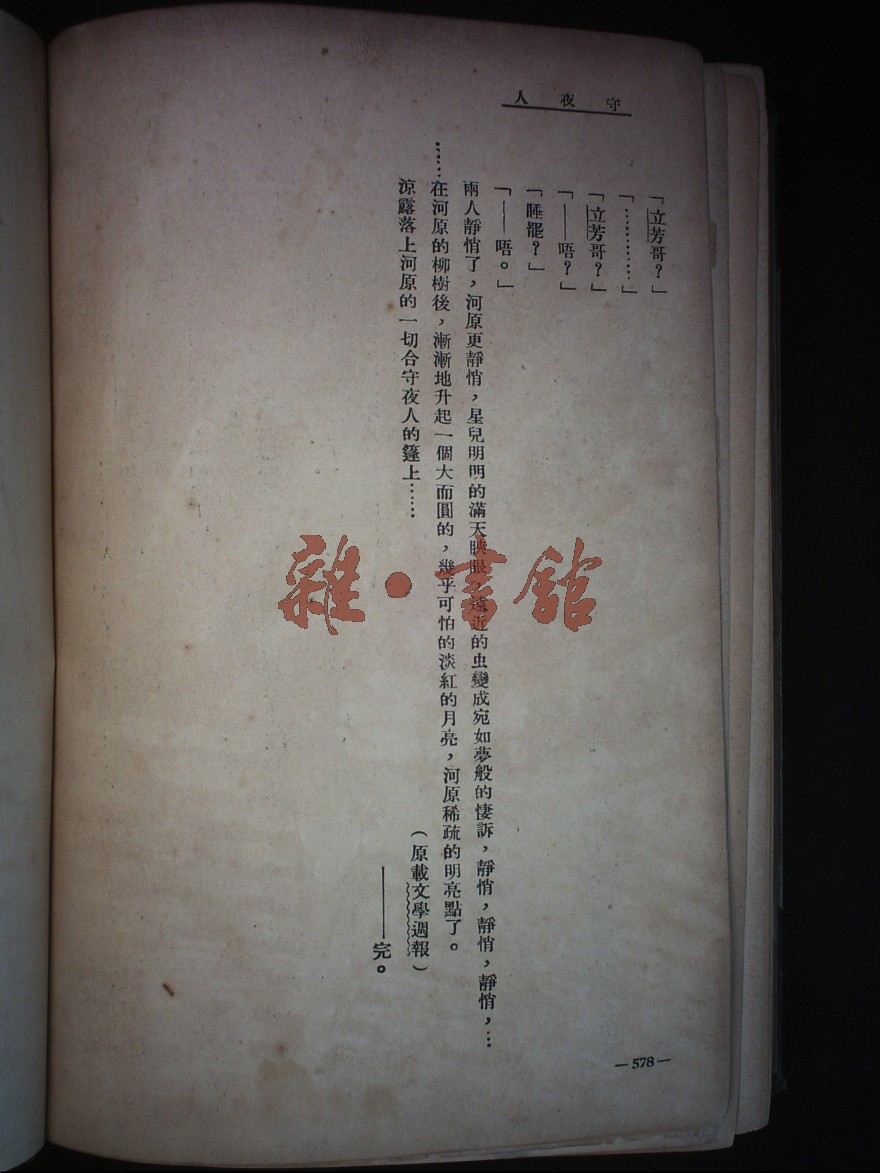 守夜人
「立芳哥？」
「…………」
「立芳哥？」
「——唔？」
「睡罷？」
「——唔。」
兩人靜悄了，河原更靜悄，星兒明明的滿天映眼，遠近的虫變成宛如夢般的悽訴，靜悄，靜悄，靜悄，…
……在河原的柳樹後，漸漸地升起一個大而圓的，幾乎可怕的淡紅的月亮，河原稀疏的明亮點了。
涼露落上河原的一切合守夜人的篷上……
（原載文學週報）
——完。
—578—
雜·書館